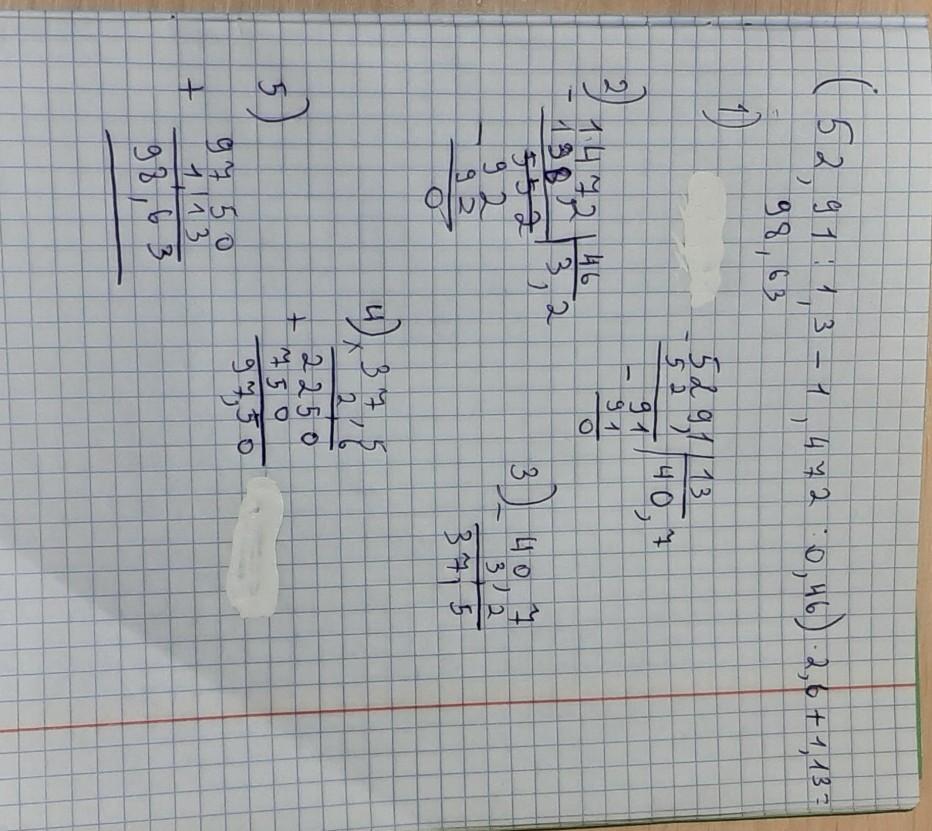 (52,91:1,3-1,472:0,46)·2,6+1,13=
98,63
1)
-5291|13
52
40,7
-91
91
0
2)
-1472|46
138
3,2
-92
92
0
3)
-40,7
3,2
37,5
4)
×37,5
2,6
+2250
750
97,50
5)
+9750
113
98,63